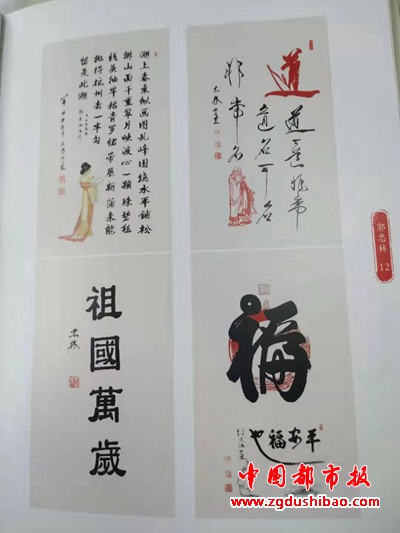 湖上春来似画图乱峰围绕水平铺松
排山面千重翠月映波心一颗珠碧毯
线头抽早稻青罗裙带展新蒲未能
抛得杭州去一半勾
留是此湖
道
道可道非常
道名可名
非常名
忠林
郭忠林
12
祖國萬歲
忠林
福
平安福也
中国都市报
www.zgdushibao.com